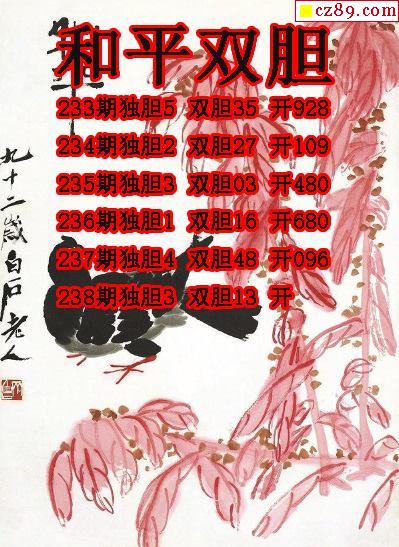 cz89.com
和平双胆
233期独胆5 双胆35 开928
234期独胆2 双胆27 开109
235期独胆3 双胆03 开480
236期独胆1 双胆16 开680
237期独胆4 双胆48 开096
238期独胆3 双胆13 开
九十二歲白石老人